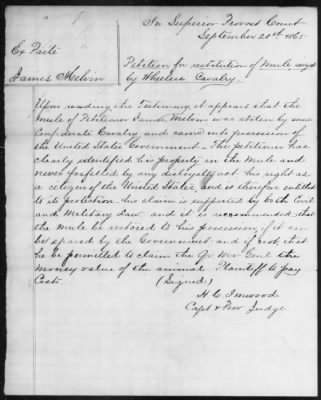 In Superior Provost Court
September 20th 1865
Ex Parte
James Melvin
Petition for restitution of Mule
by Wheelers Cavalry.
Upon reading the Testimony it appears that the
Mule of Petitioner James Melvin was stolen by some
Confederate Cavalry and came into possession of
the United States Government - The petitioner has
clearly identified his property in the Mule and
never forfeited by any disloyalty act his right as
a citizen of the United States, and is therefore entitled
to its protection. his claim is supported by both Civil
and Military Law and it is recommended that
the Mule be restored to his possession, if it can
be spared by the Government and if not, that
he be permitted to claim the Qr Mr Genl the
money value of the animal Plaintiff to pay
Costs. (Signed)
H C Inwood
Capt & Prov Judge.